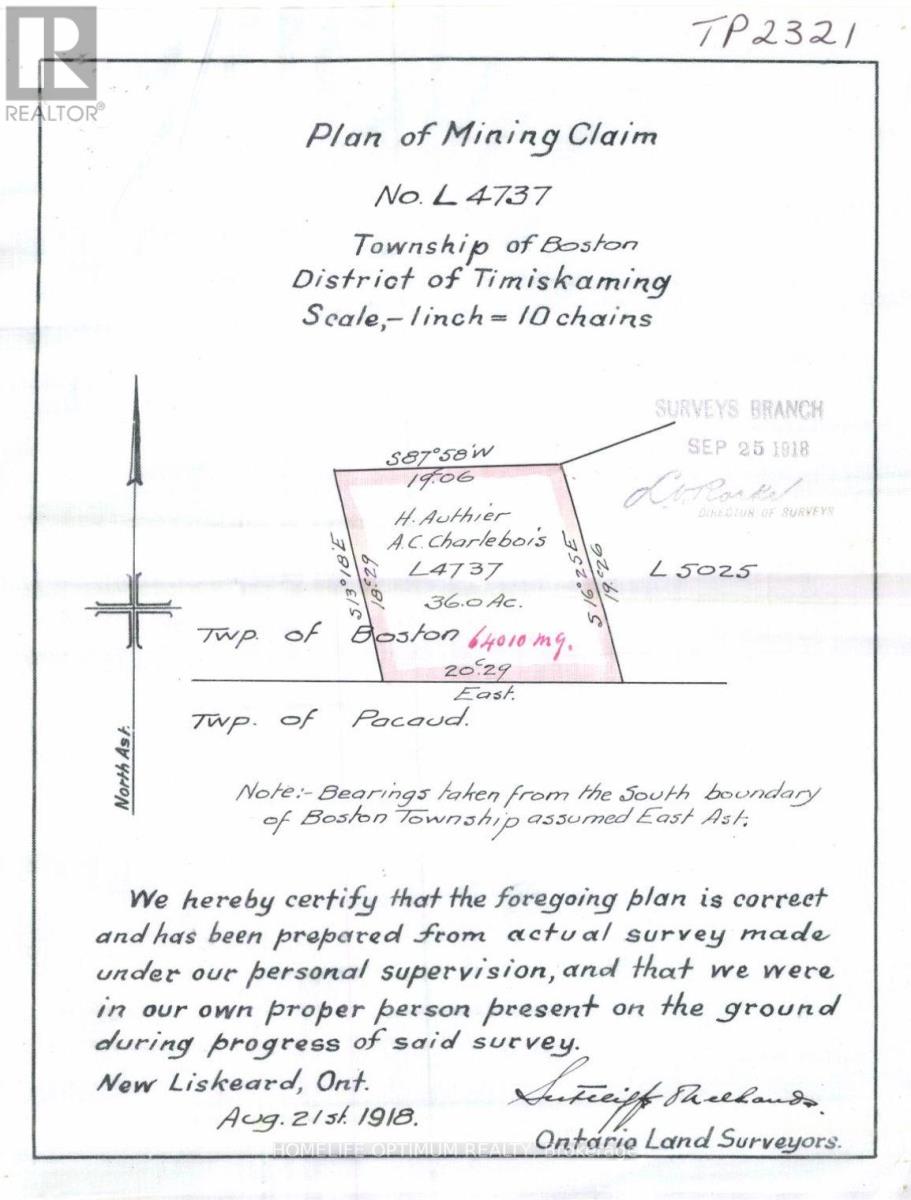 TP2321
REALTOR®
Plan of Mining Claim
No. L 4737
Township of Boston
District of Timiskaming
Scale,- 1 inch = 10 chains
SURVEYS BRANCH
SEP 25 1918
DIRECTOR OF SURVEYS
S87°58'W
19c.06
H. Authier
A.C. Charlebois
L4737
36.0 Ac.
S13°18'E
18c.29
S16°25'E
19c.26
L5025
Twp. of Boston
64010 mg.
20c.29
East.
Twp. of Pacaud.
North Ast.
Note:- Bearings taken from the South boundary
of Boston Township assumed East Ast.
We hereby certify that the foregoing plan is correct
and has been prepared from actual survey made
under our personal supervision, and that we were
in our own proper person present on the ground
during progress of said survey.
New Liskeard, Ont.
Aug. 21st. 1918.
Ontario Land Surveyors.
HOMELIFE OPTIMUM REALTY, Brokerage